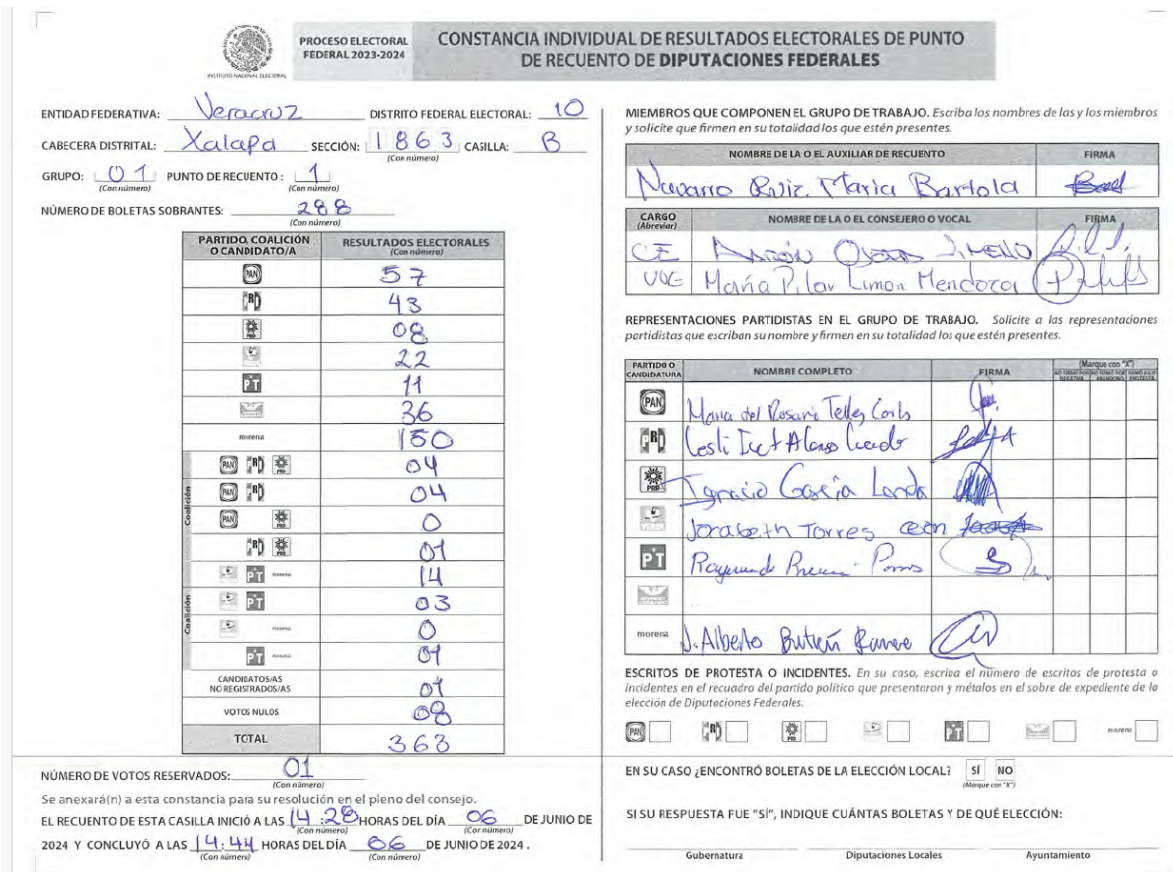 INSTITUTO NACIONAL ELECTORAL
PROCESO ELECTORAL
FEDERAL 2023-2024
CONSTANCIA INDIVIDUAL DE RESULTADOS ELECTORALES DE PUNTO
DE RECUENTO DE DIPUTACIONES FEDERALES
ENTIDAD FEDERATIVA: Veracruz DISTRITO FEDERAL ELECTORAL: 10
CABECERA DISTRITAL: Xalapa SECCIÓN: 1863 CASILLA: B
(Con número)
GRUPO: 01 PUNTO DE RECUENTO: 1
(Con número) (Con número)
NÚMERO DE BOLETAS SOBRANTES: 288
(Con número)
PARTIDO, COALICIÓN O CANDIDATO/A RESULTADOS ELECTORALES (Con número)
PAN 57
PRI 43
PRD 08
22
PT 11
36
morena 150
Coalición
PAN PRI PRD 04
PAN PRI 04
PAN PRD 0
PRI PRD 01
Coalición
PT morena 14
PT 03
morena 0
PT morena 01
CANDIDATOS/AS NO REGISTRADOS/AS 01
VOTOS NULOS 08
TOTAL 363
NÚMERO DE VOTOS RESERVADOS: 01
(Con número)
Se anexará(n) a esta constancia para su resolución en el pleno del consejo.
EL RECUENTO DE ESTA CASILLA INICIÓ A LAS 14:28 HORAS DEL DÍA 06 DE JUNIO DE
(Con número) (Con número)
2024 Y CONCLUYÓ A LAS 14:44 HORAS DEL DÍA 06 DE JUNIO DE 2024.
(Con número) (Con número)
MIEMBROS QUE COMPONEN EL GRUPO DE TRABAJO. Escriba los nombres de las y los miembros
y solicite que firmen en su totalidad los que estén presentes.
NOMBRE DE LA O EL AUXILIAR DE RECUENTO FIRMA
Navarro Ruiz Maria Bartola
CARGO (Abreviar) NOMBRE DE LA O EL CONSEJERO O VOCAL FIRMA
CE
VOE Maria Pilar Limon Mendoza
REPRESENTACIONES PARTIDISTAS EN EL GRUPO DE TRABAJO. Solicite a las representaciones
partidistas que escriban su nombre y firmen en su totalidad los que estén presentes.
PARTIDO O CANDIDATURA NOMBRE COMPLETO FIRMA (Marque con "X")
NO FIRMÓ POR NEGATIVA NO FIRMÓ POR ABANDONO FIRMÓ BAJO PROTESTA
PAN Maria del Rosario Tellez
PRI Alonso
PRD Ignacio García Landa
Torres
PT
morena J. Alberto
ESCRITOS DE PROTESTA O INCIDENTES. En su caso, escriba el número de escritos de protesta o
incidentes en el recuadro del partido político que presentaron y métalos en el sobre de expediente de la
elección de Diputaciones Federales.
PAN PRI PRD PT morena
EN SU CASO ¿ENCONTRÓ BOLETAS DE LA ELECCIÓN LOCAL? SÍ NO
(Marque con "X")
SI SU RESPUESTA FUE "SÍ", INDIQUE CUÁNTAS BOLETAS Y DE QUÉ ELECCIÓN:
Gubernatura Diputaciones Locales Ayuntamiento